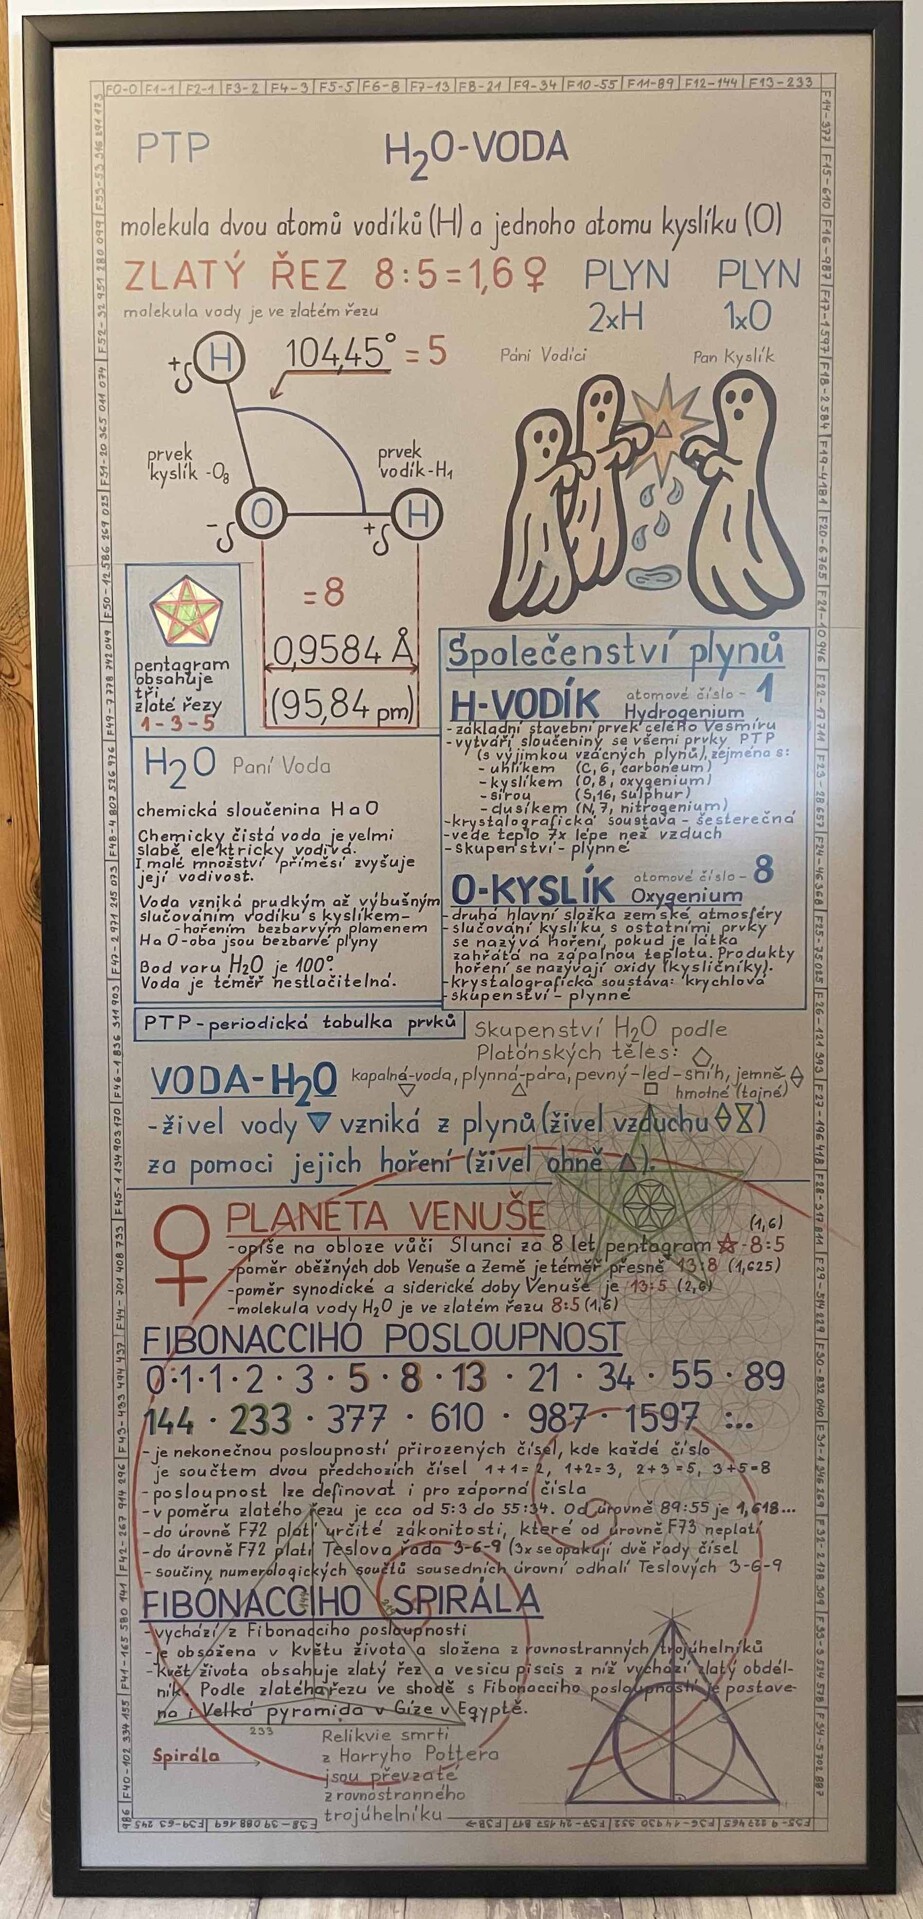 F0-0 F1-1 F2-1 F3-2 F4-3 F5-5 F6-8 F7-13 F8-21 F9-34 F10-55 F11-89 F12-144 F13-233
PTP
H2O-VODA
molekula dvou atomů vodíků (H) a jednoho atomu kyslíku (O)
ZLATÝ ŘEZ 8:5=1,6♀
PLYN 2xH
PLYN 1xO
molekula vody je ve zlatém řezu
Páni Vodíci
Pan Kyslík
+δ H
104,45° = 5
prvek
kyslík -O8
prvek
vodík-H1
-δ O
+δ H
= 8
0,9584 Å
(95,84 pm)
pentagram
obsahuje
tři
zlaté řezy
1-3-5
Společenství plynů
H-VODÍK atomové číslo - 1
Hydrogenium
-základní stavební prvek celého Vesmíru
-vytváří sloučeniny se všemi prvky PTP
(s výjimkou vzácných plynů), zejména s:
- uhlíkem (C, 6, carboneum)
- kyslíkem (O, 8, oxygenium)
- sírou (S, 16, sulphur)
- dusíkem (N, 7, nitrogenium)
-krystalografická soustava - šesterečná
-vede teplo 7x lépe než vzduch
-skupenství - plynné
O-KYSLÍK atomové číslo - 8
Oxygenium
-druhá hlavní složka zemské atmosféry
-slučování kyslíku s ostatními prvky
se nazývá hoření, pokud je látka
zahřátá na zápalnou teplotu. Produkty
hoření se nazývají oxidy (kysličníky).
-krystalografická soustava: krychlová
-skupenství - plynné
H2O Paní Voda
chemická sloučenina H a O
Chemicky čistá voda je velmi
slabě elektricky vodivá.
I malé množství příměsí zvyšuje
její vodivost.
Voda vzniká prudkým až výbušným
slučováním vodíku s kyslíkem-
-hořením bezbarvým plamenem
H a O-oba jsou bezbarvé plyny
Bod varu H2O je 100°.
Voda je téměř nestlačitelná.
PTP-periodická tabulka prvků
Skupenství H2O podle
Platónských těles:
VODA-H2O kapalné-voda, plynná-pára, pevný-led-sníh, jemně
hmotné (tajné)
-živel vody ▼ vzniká z plynů (živel vzduchu)
za pomoci jejich hoření (živel ohně ▲).
♀ PLANETA VENUŠE
-opíše na obloze vůči Slunci za 8 let pentagram ☆-8:5 (1,6)
-poměr oběžných dob Venuše a Země je téměř přesně 13:8 (1,625)
-poměr synodické a siderické doby Venuše je 13:5 (2,6)
-molekula vody H2O je ve zlatém řezu 8:5 (1,6)
FIBONACCIHO POSLOUPNOST
0·1·1·2·3·5·8·13·21·34·55·89
144·233·377·610·987·1597·...
-je nekonečnou posloupností přirozených čísel, kde každé číslo
je součtem dvou předchozích čísel 1+1=2, 1+2=3, 2+3=5, 3+5=8
-posloupnost lze definovat i pro záporná čísla
-v poměru zlatého řezu je cca od 5:3 do 55:34. Od úrovně 89:55 je 1,618...
-do úrovně F72 platí určité zákonitosti, které od úrovně F73 neplatí
-do úrovně F72 platí Teslova řada 3-6-9 (3x se opakují dvě řady čísel
-součiny numerologických součtů sousedních úrovní odhalí Teslových 3-6-9
FIBONACCIHO SPIRÁLA
-vychází z Fibonacciho posloupnosti
-je obsažena v Květu života a složena z rovnostranných trojúhelníků
-květ života obsahuje zlatý řez a vesicu piscis z níž vychází zlatý obdél-
ník. Podle zlatého řezu ve shodě s Fibonacciho posloupností je postave-
na i Velká pyramida v Gíze v Egyptě.
233
Spirála
Relikvie smrti
z Harryho Pottera
jsou převzaté
z rovnostranného
trojúhelníku